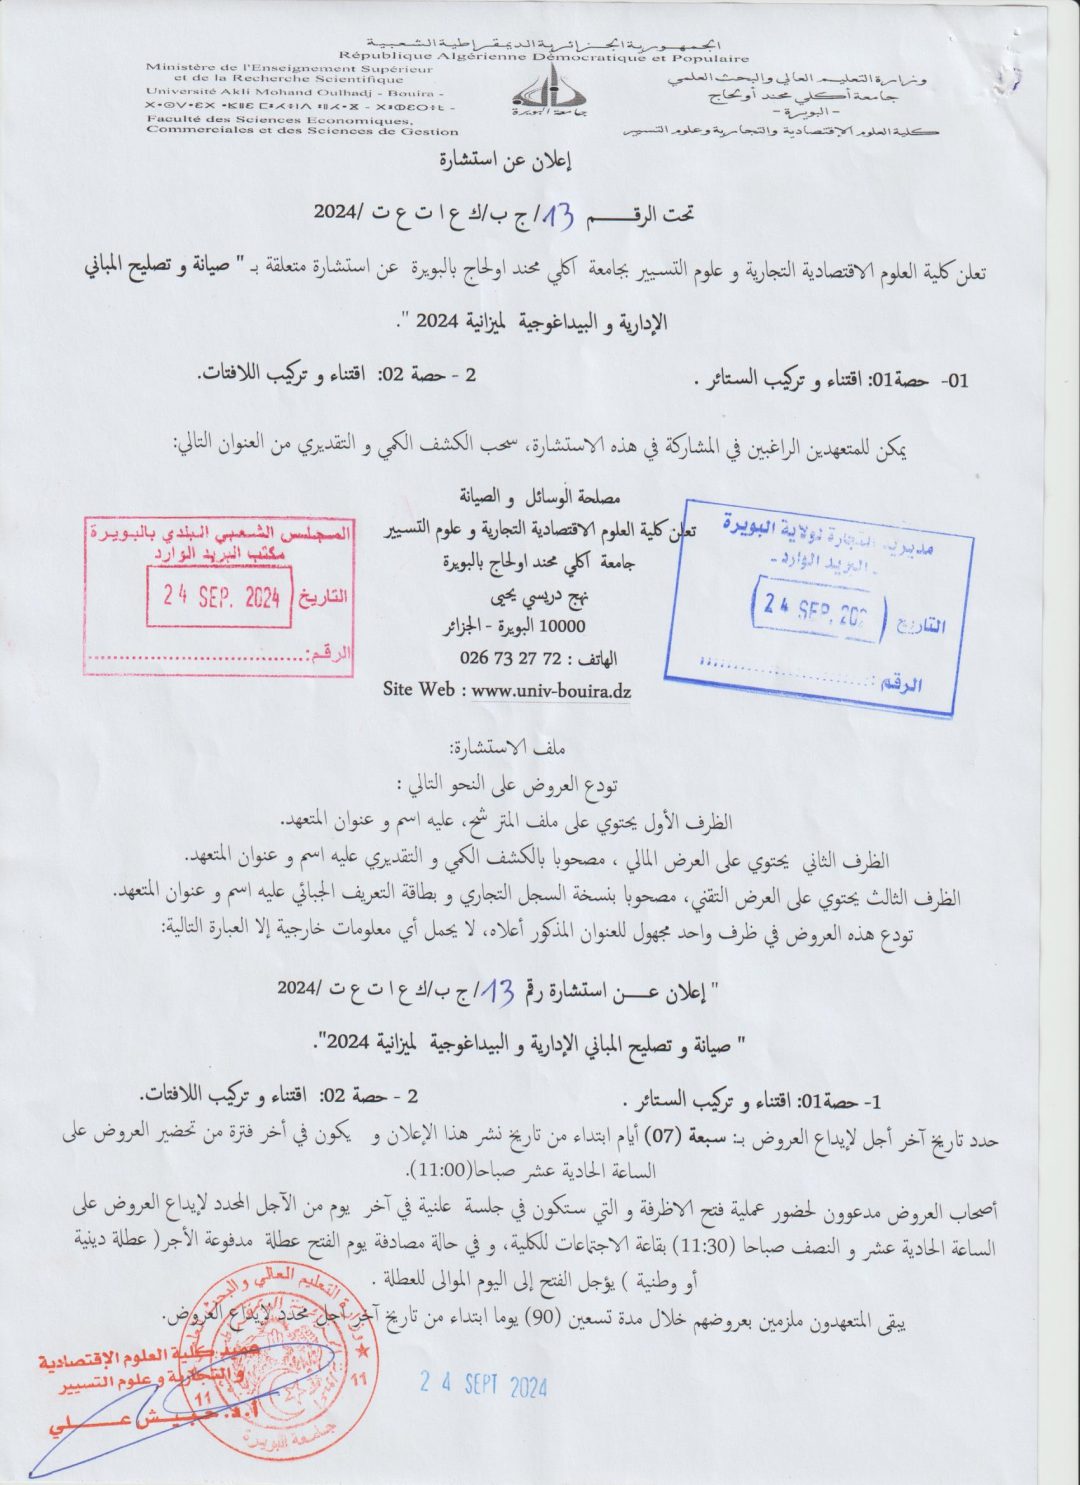 الجمهورية الجزائرية الديمقراطية الشعبية
République Algérienne Démocratique et Populaire
Ministère de l'Enseignement Supérieur
et de la Recherche Scientifique
Université Akli Mohand Oulhadj - Bouira -
Faculté des Sciences Economiques,
Commerciales et des Sciences de Gestion
وزارة التعليم العالي والبحث العلمي
جامعة أكلي محند أولحاج
- البويرة -
كلية العلوم الإقتصادية والتجارية وعلوم التسيير
جامعة البويرة
إعلان عن استشارة
تحت الرقـــــم 13/ ج ب/ك ع ا ت ع ت /2024
تعلن كلية العلوم الاقتصادية التجارية و علوم التسيير بجامعة اكلي محند اولحاج بالبويرة عن استشارة متعلقة بـ " صيانة و تصليح المباني
الإدارية و البيداغوجية لميزانية 2024 ".
01- حصة01: اقتناء و تركيب الستائر .
2 - حصة 02: اقتناء و تركيب اللافتات.
يمكن للمتعهدين الراغبين في المشاركة في هذه الاستشارة، سحب الكشف الكمي و التقديري من العنوان التالي:
مصلحة الوسائل و الصيانة
تعلن كلية العلوم الاقتصادية التجارية و علوم التسيير
جامعة اكلي محند اولحاج بالبويرة
نهج دريسي يحيى
10000 البويرة - الجزائر
الهاتف : 026 73 27 72
Site Web : www.univ-bouira.dz
المجلس الشعبي البلدي بالبويرة
مكتب البريد الوارد
التاريخ 24 SEP. 2024
الرقم:
مديرية التجارة لولاية البويرة
- البريد الوارد -
التاريخ 24 SEP. 202
الرقم :
ملف الاستشارة:
تودع العروض على النحو التالي :
الظرف الأول يحتوي على ملف المتر شح، عليه اسم و عنوان المتعهد.
الظرف الثاني يحتوي على العرض المالي ، مصحوبا بالكشف الكمي و التقديري عليه اسم و عنوان المتعهد.
الظرف الثالث يحتوي على العرض التقني، مصحوبا بنسخة السجل التجاري و بطاقة التعريف الجبائي عليه اسم و عنوان المتعهد.
تودع هذه العروض في ظرف واحد مجهول للعنوان المذكور أعلاه، لا يحمل أي معلومات خارجية إلا العبارة التالية:
" إعلان عـــن استشارة رقم 13/ ج ب/ك ع ا ت ع ت /2024
" صيانة و تصليح المباني الإدارية و البيداغوجية لميزانية 2024".
1- حصة01: اقتناء و تركيب الستائر .
2 - حصة 02: اقتناء و تركيب اللافتات.
حدد تاريخ آخر أجل لإيداع العروض بـ: سبعة (07) أيام ابتداء من تاريخ نشر هذا الإعلان و يكون في أخر فترة من تحضير العروض على
الساعة الحادية عشر صباحا(11:00).
أصحاب العروض مدعوون لحضور عملية فتح الاظرفة و التي ستكون في جلسة علنية في آخر يوم من الآجل المحدد لإيداع العروض على
الساعة الحادية عشر و النصف صباحا (11:30) بقاعة الاجتماعات للكلية، و في حالة مصادفة يوم الفتح عطلة مدفوعة الأجر( عطلة دينية
أو وطنية ) يؤجل الفتح إلى اليوم الموالى للعطلة .
يبقى المتعهدون ملزمين بعروضهم خلال مدة تسعين (90) يوما ابتداء من تاريخ آخر أجل محدد لإيداع العروض.
وزارة التعليم العالي والبحث
11
11
جامعة البويرة
عميد كلية العلوم الإقتصادية
و التجارية و علوم التسيير
أ.د. حبيش عـــــلي
24 SEPT 2024